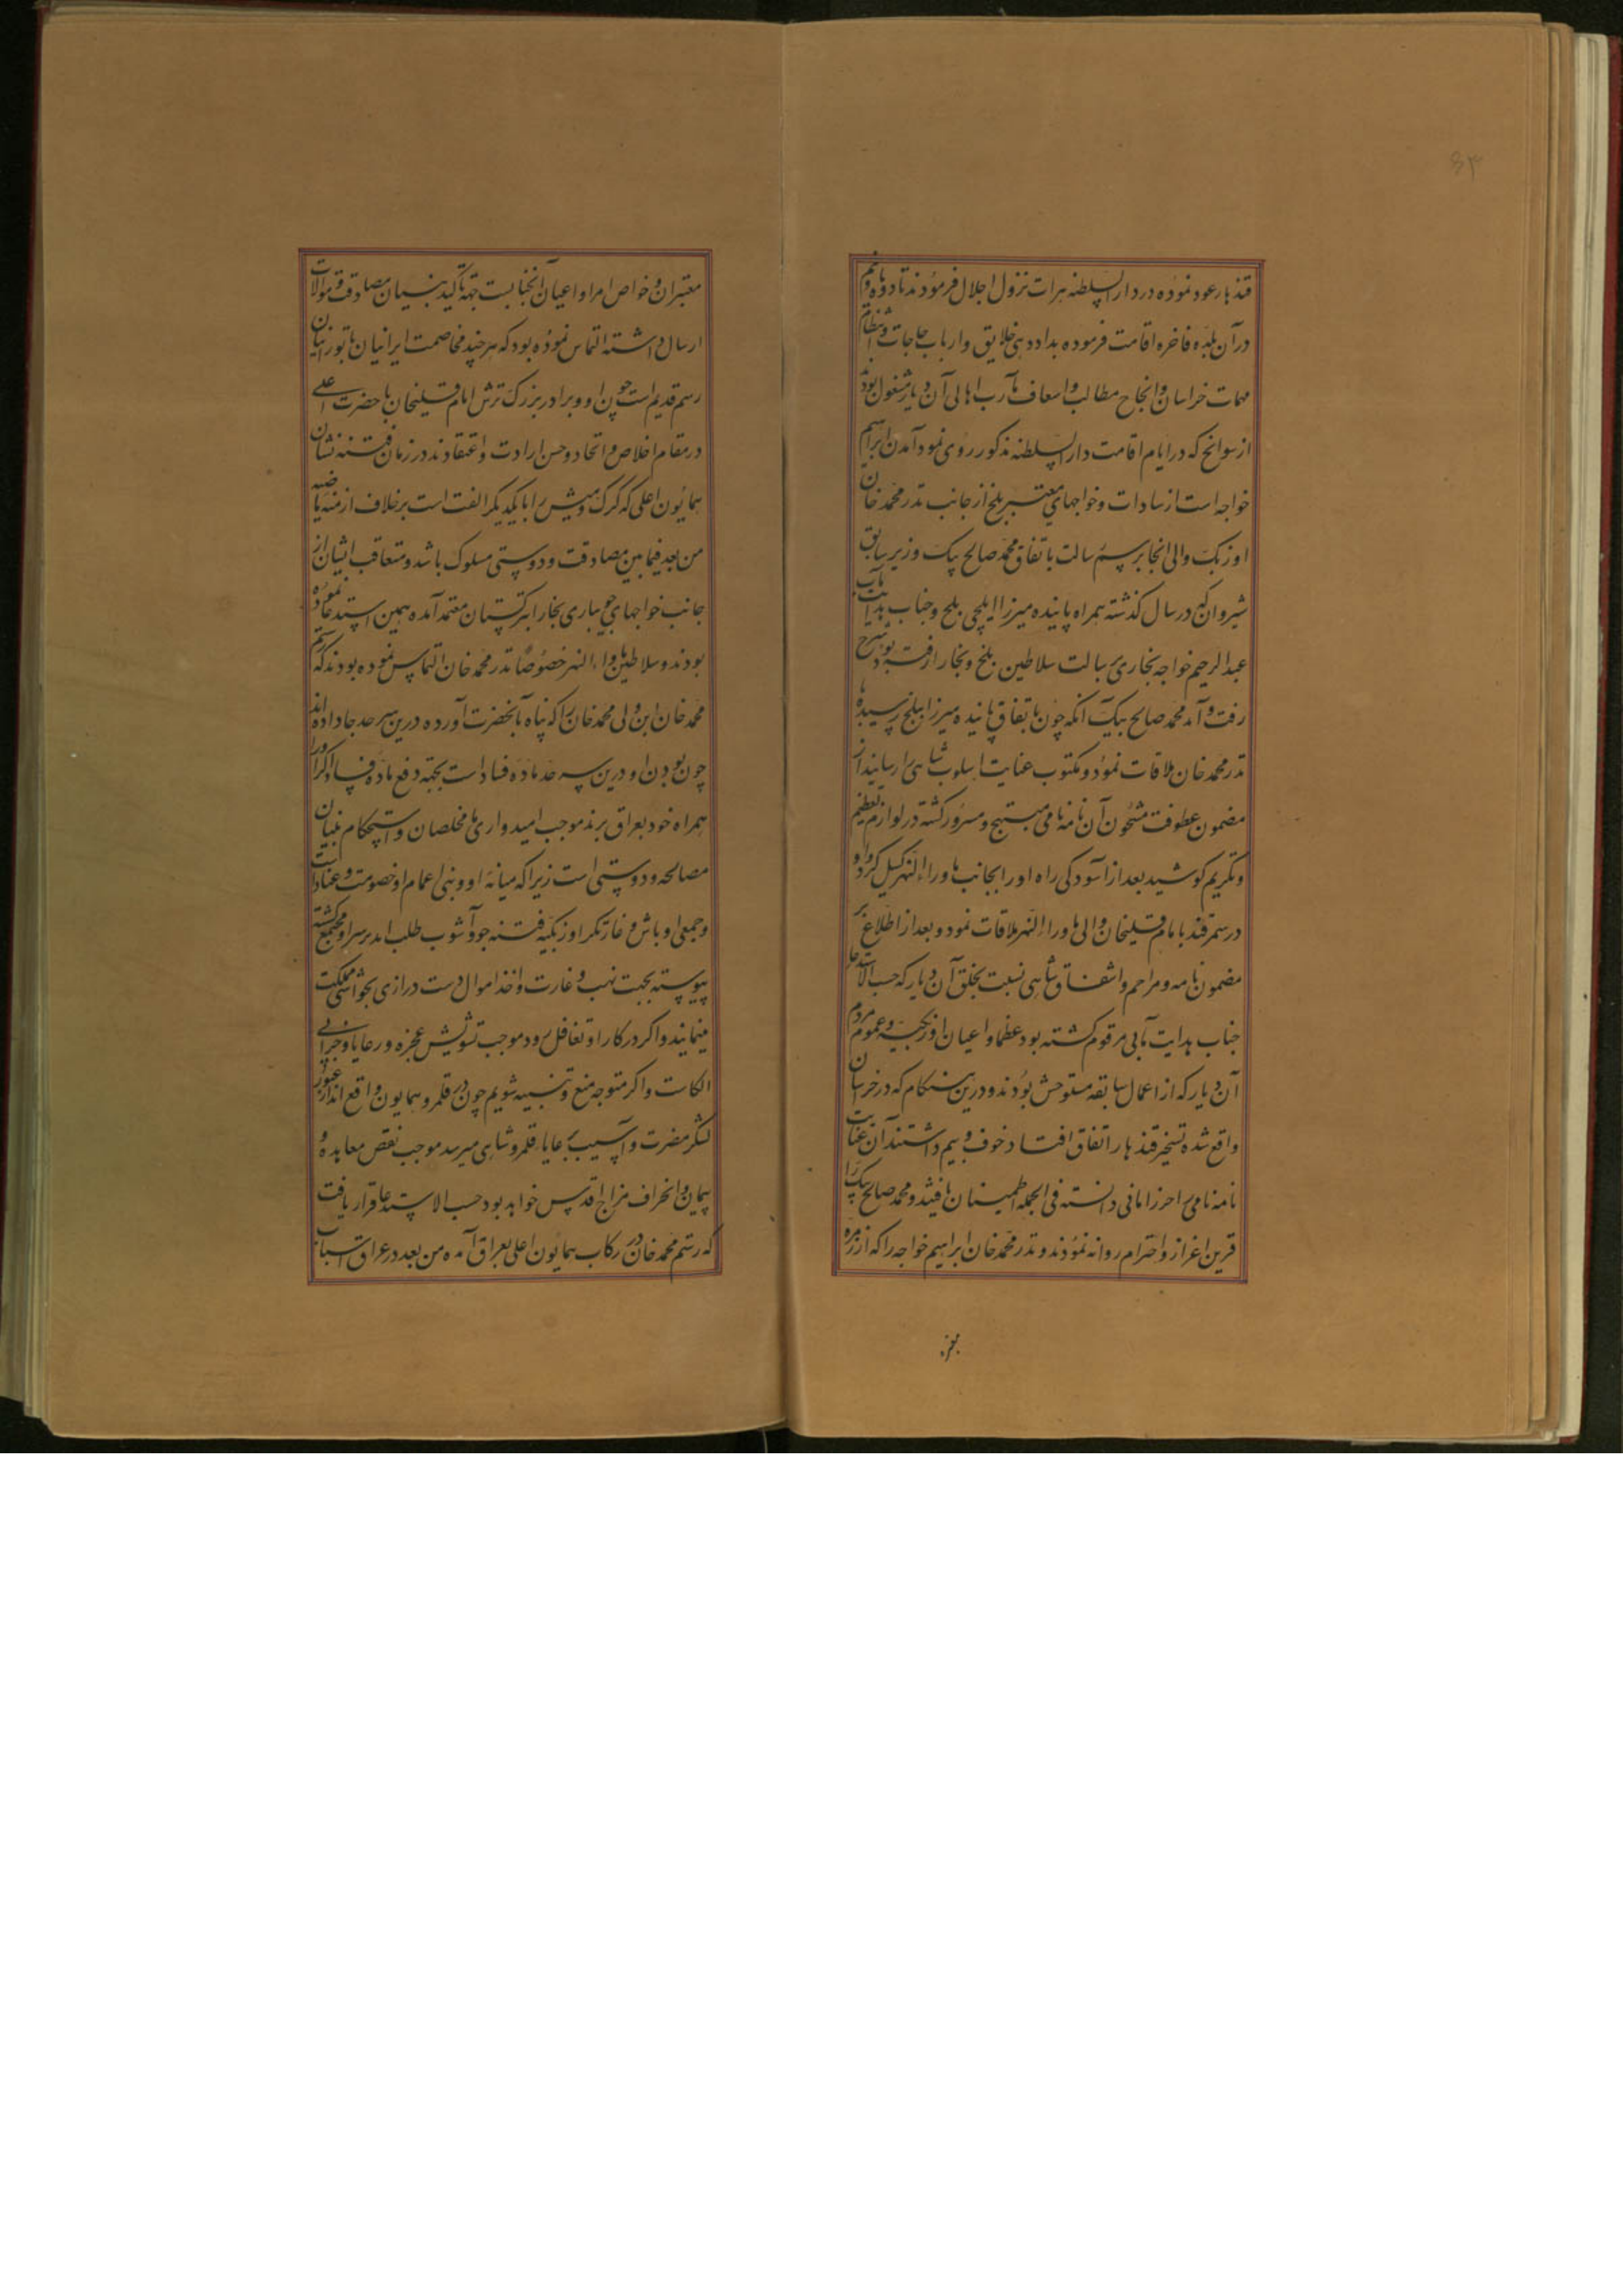 ۶۳
قندهار عود نموده در دار السلطنه هرات نزول اجلال فرمودند تا دو ماه و نیم
در آن بلده فاخره اقامت فرموده بداد دهی خلایق و ارباب حاجات و انتظام
مهمات خراسان و انجاح مطالب و اسعاف مآرب اهالی آن دیار مشغول بودند
از سوانح که در ایام اقامت دار السلطنه مذکور روی نمود آمدن ابراهیم
خواجه است از سادات و خواجهای معتبر بلخ از جانب ندر محمد خان
اوزبک والی انجا برسم رسالت باتفاق محمد صالح بیک وزیر سابق
شیروان که در سال گذشته همراه پاینده میرزا ایلچی بلخ و جناب هدایت مآب
عبد الرحیم خواجه بخاری برسالت سلاطین بلخ و بخارا رفته بود شرح
رفت و آمد محمد صالح بیک آنکه چون باتفاق پاینده میرزا ببلخ رسیده با
ندر محمد خان ملاقات نمود و مکتوب عنایت اسلوب شاهی را رسانید از
مضمون عطوفت مشحون آن نامه نامی مبتهج و مسرور کشته در لوازم تعظیم
و تکریم کوشید بعد از آسودکی راه او را بجانب ماوراء النهر کسیل کرد و او
در سمرقند بامام قلیخان والی ماوراء النهر ملاقات نمود و بعد از اطلاع بر
مضمون نامه و مراحم و اشفاق شاهی نسبت بخلق آن دیار که حسب الاستدعا
جناب هدایت مآبی مرقوم کشته بود عظما و اعیان اوزبکیه و عموم مردم
آن دیار که از اعمال سابقه مستوحش بودند و درین هنکام که در خراسان
واقع شده تسخیر قندهار اتفاق افتاد خوف و بیم داشتند آن عنایت
نامه نامی را حرز امانی دانسته فی الجمله اطمینان یافتند و محمد صالح بیک را
قرین اعزاز و احترام روانه نمودند و ندر محمد خان ابراهیم خواجه را که از زمره
معتبران و خواص امرا و اعیان آنجناب است جهة تأکید بنیان مصادقت و موالات
ارسال داشته التماس نموده بود که هر چند مخاصمت ایرانیان با تورانیان
رسم قدیم است چون او و برادر بزرک ترش امام قلیخان با حضرت اعلی
در مقام اخلاص و اتحاد و حسن ارادت و اعتقادند در زمان فتنه نشان
همایون اعلی که کرک و میش را با یکدیکر الفت است بر خلاف ازمنه ماضیه
من بعد فیما بین مصادقت و دوستی مسلوک باشد و متعاقب ایشان از
جانب خواجهای جویباری بخارا ترکستان معتمد آمده همین استدعا نموده
بودند و سلاطین ماوراء النهر خصوصا ندر محمد خان التماس نموده بودند که رستم
محمد خان ابن ولی محمد خان را که پناه بآنحضرت آورده درین سرحد جا داده اند
چون بودن او درین سرحد ماده فساد است بجهة دفع ماده فساد اکر او را
همراه خود بعراق برند موجب امیدواری ما مخلصان و استحکام بنیان
مصالحه و دوستی است زیرا که میانه او و بنی اعمام او خصومت و عناد است
و جمعی اوباش و غارتکر اوزبکیه فتنه جو و آشوب طلب اند بر سر او مجتمع کشته
پیوسته بجهت نهب و غارت و اخذ اموال دست درازی بحواشی مملکت
مینمایند و اکر در کار او تغافل رود موجب تشویش عجزه و رعایا و خرابی
الکاست و اکر متوجه منع و تنبیه شویم چون در قلمرو همایون واقع اند از عبور
لشکر مضرت و آسیب برعایاء قلمرو شاهی میرسد موجب نقص معاهده و
پیمان و انحراف مزاج اقدس خواهد بود حسب الاستدعا قرار یافت
که رستم محمد خان در رکاب همایون اعلی بعراق آمده من بعد در عراق